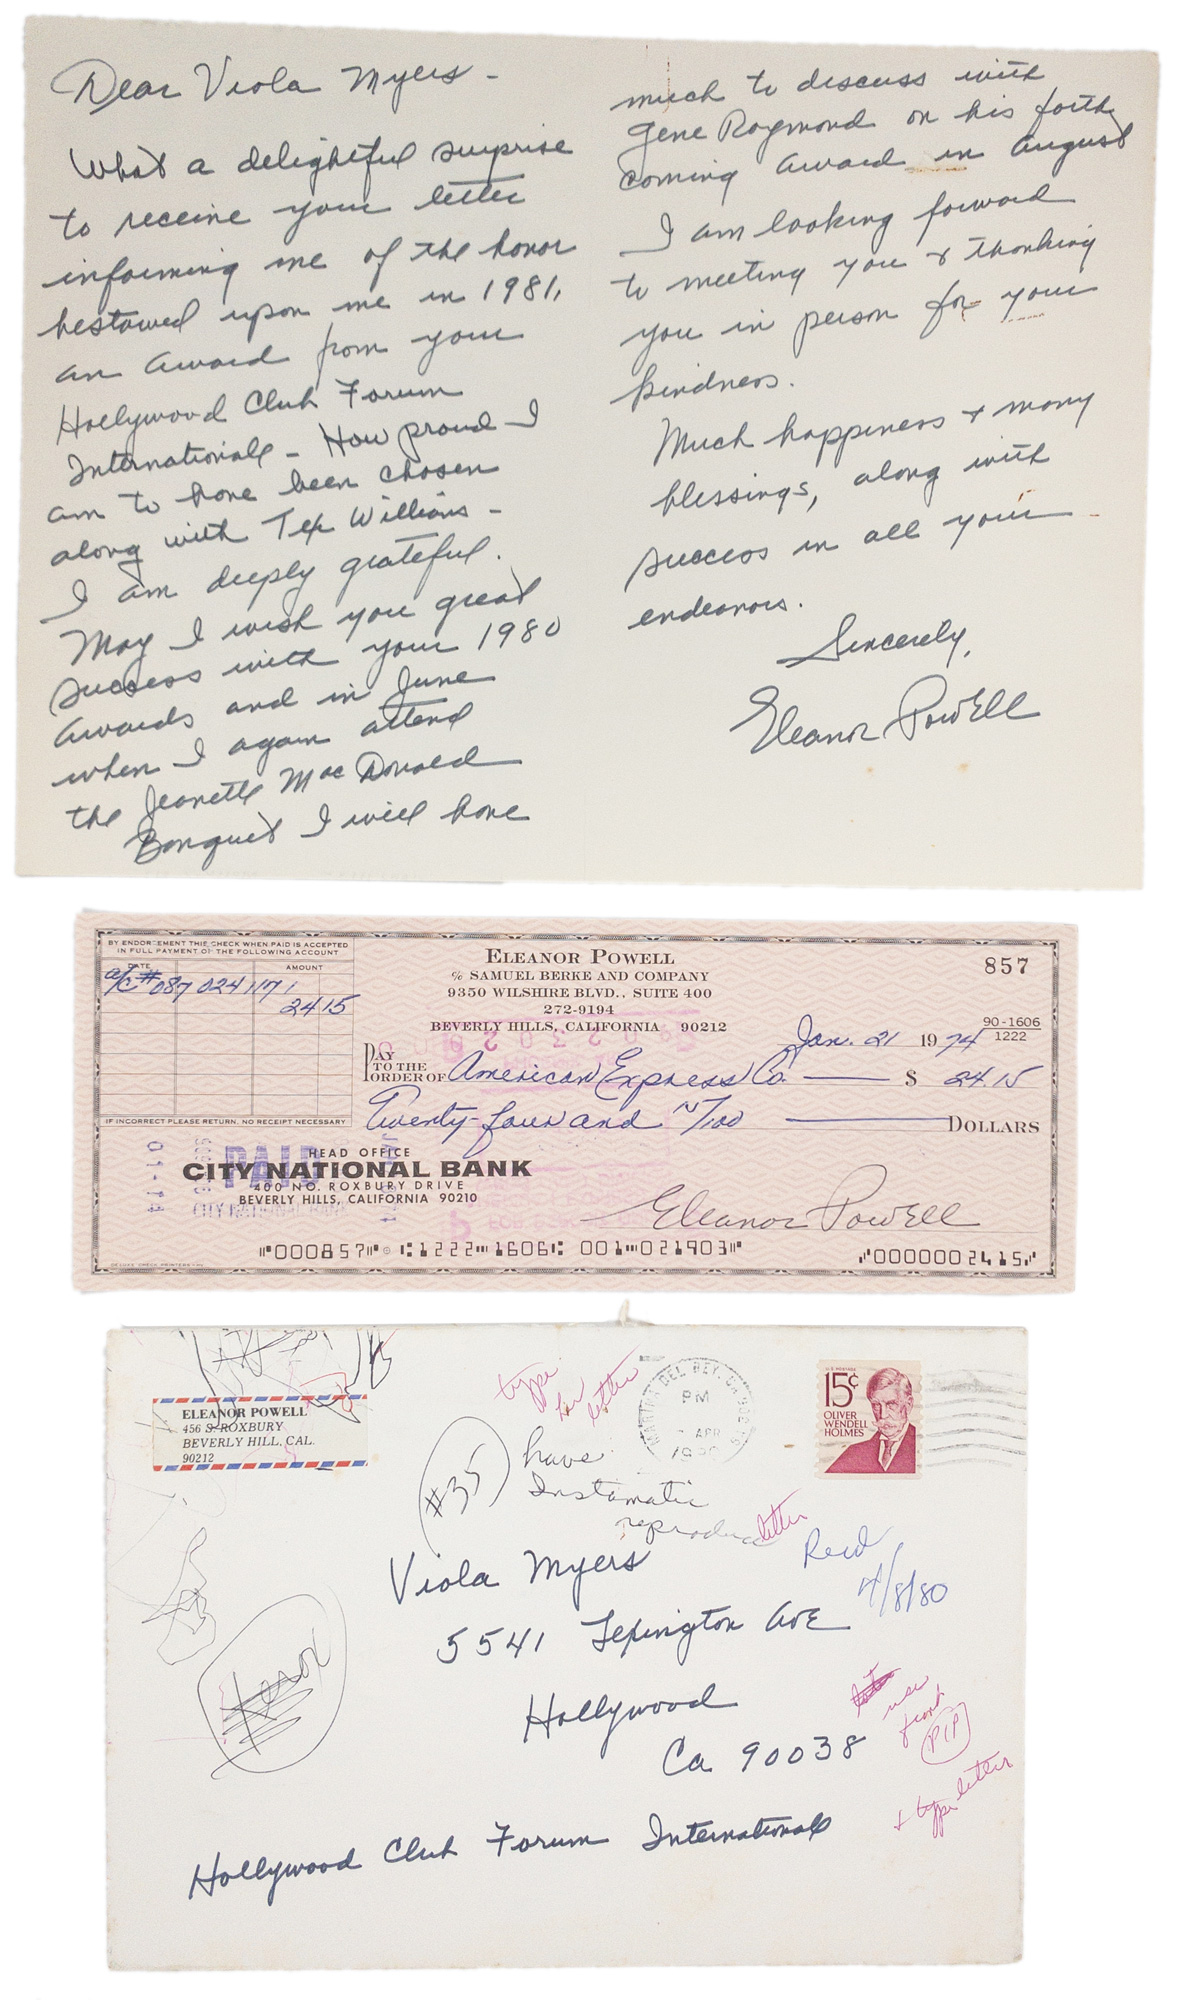 Dear Viola Myers -
What a delightful surprise
to receive your letter
informing me of the honor
bestowed upon me in 1981,
an award from your
Hollywood Club Forum
International - How proud I
am to have been chosen
along with Tex Williams -
I am deeply grateful.
May I wish you great
success with your 1980
awards and in June
when I again attend
the Jeanette MacDonald
Banquet I will have
much to discuss with
Gene Raymond on his forth
coming award in August
I am looking forward
to meeting you & thanking
you in person for your
kindness.
Much happiness & many
blessings, along with
success in all your
endeavors.
Sincerely,
Eleanor Powell
BY ENDORSEMENT THIS CHECK WHEN PAID IS ACCEPTED
IN FULL PAYMENT OF THE FOLLOWING ACCOUNT
DATE AMOUNT
a/c # 087 024 117 1
24 15
IF INCORRECT PLEASE RETURN. NO RECEIPT NECESSARY
ELEANOR POWELL
% SAMUEL BERKE AND COMPANY
9350 WILSHIRE BLVD., SUITE 400
272-9194
BEVERLY HILLS, CALIFORNIA 90212
857
Jan. 21 1974
90-1606
1222
PAY
TO THE
ORDER OF American Express Co. $ 24.15
Twenty-four and 15/100 DOLLARS
PAID
HEAD OFFICE
CITY NATIONAL BANK
400 NO. ROXBURY DRIVE
BEVERLY HILLS, CALIFORNIA 90210
CITY NATIONAL BANK
Eleanor Powell
⑈000857⑈ ⑆1222⑉1606⑆ 001⑉021903⑈ ⑇0000002415⑇
DELUXE CHECK PRINTERS
ELEANOR POWELL
456 S. ROXBURY
BEVERLY HILL, CAL.
90212
type
her
letter
MARINA DEL REY, CA
PM
APR
1980
U.S. POSTAGE
15¢
OLIVER
WENDELL
HOLMES
#35
have
Instamatic
reproduce letter
Recd
4/8/80
Viola Myers
5541 Lexington Ave
Hollywood
Ca 90038
Xerox
use
front
PIP
+ type letter
Hollywood Club Forum International